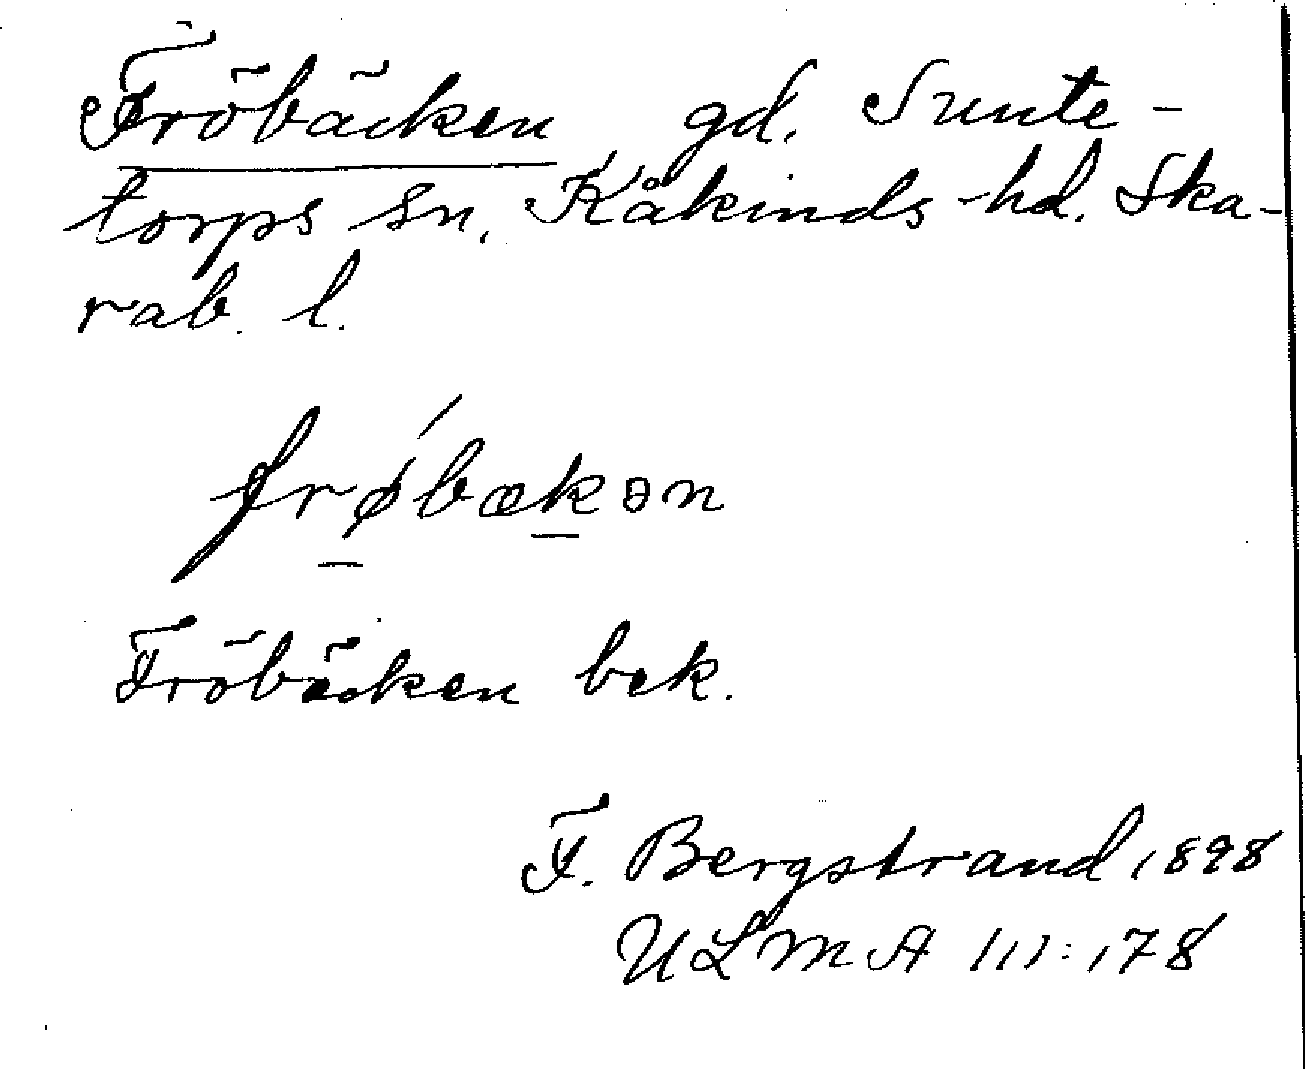 Fröbäcken gd. Sunte-
torps sn. Kåkinds hd. Ska-
rab. l.
frǿbækən
Fröbäcken bek.
F. Bergstrand 1898
ULMA 111:178